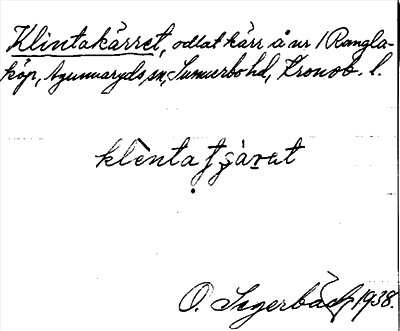 Klintakärret, odlat kärr å nr 1 Rangla-
köp, Agunnaryds sn, Sunnerbo hd, Kronob. l.
klèntatʃàrat
O. Segerbäck 1938.